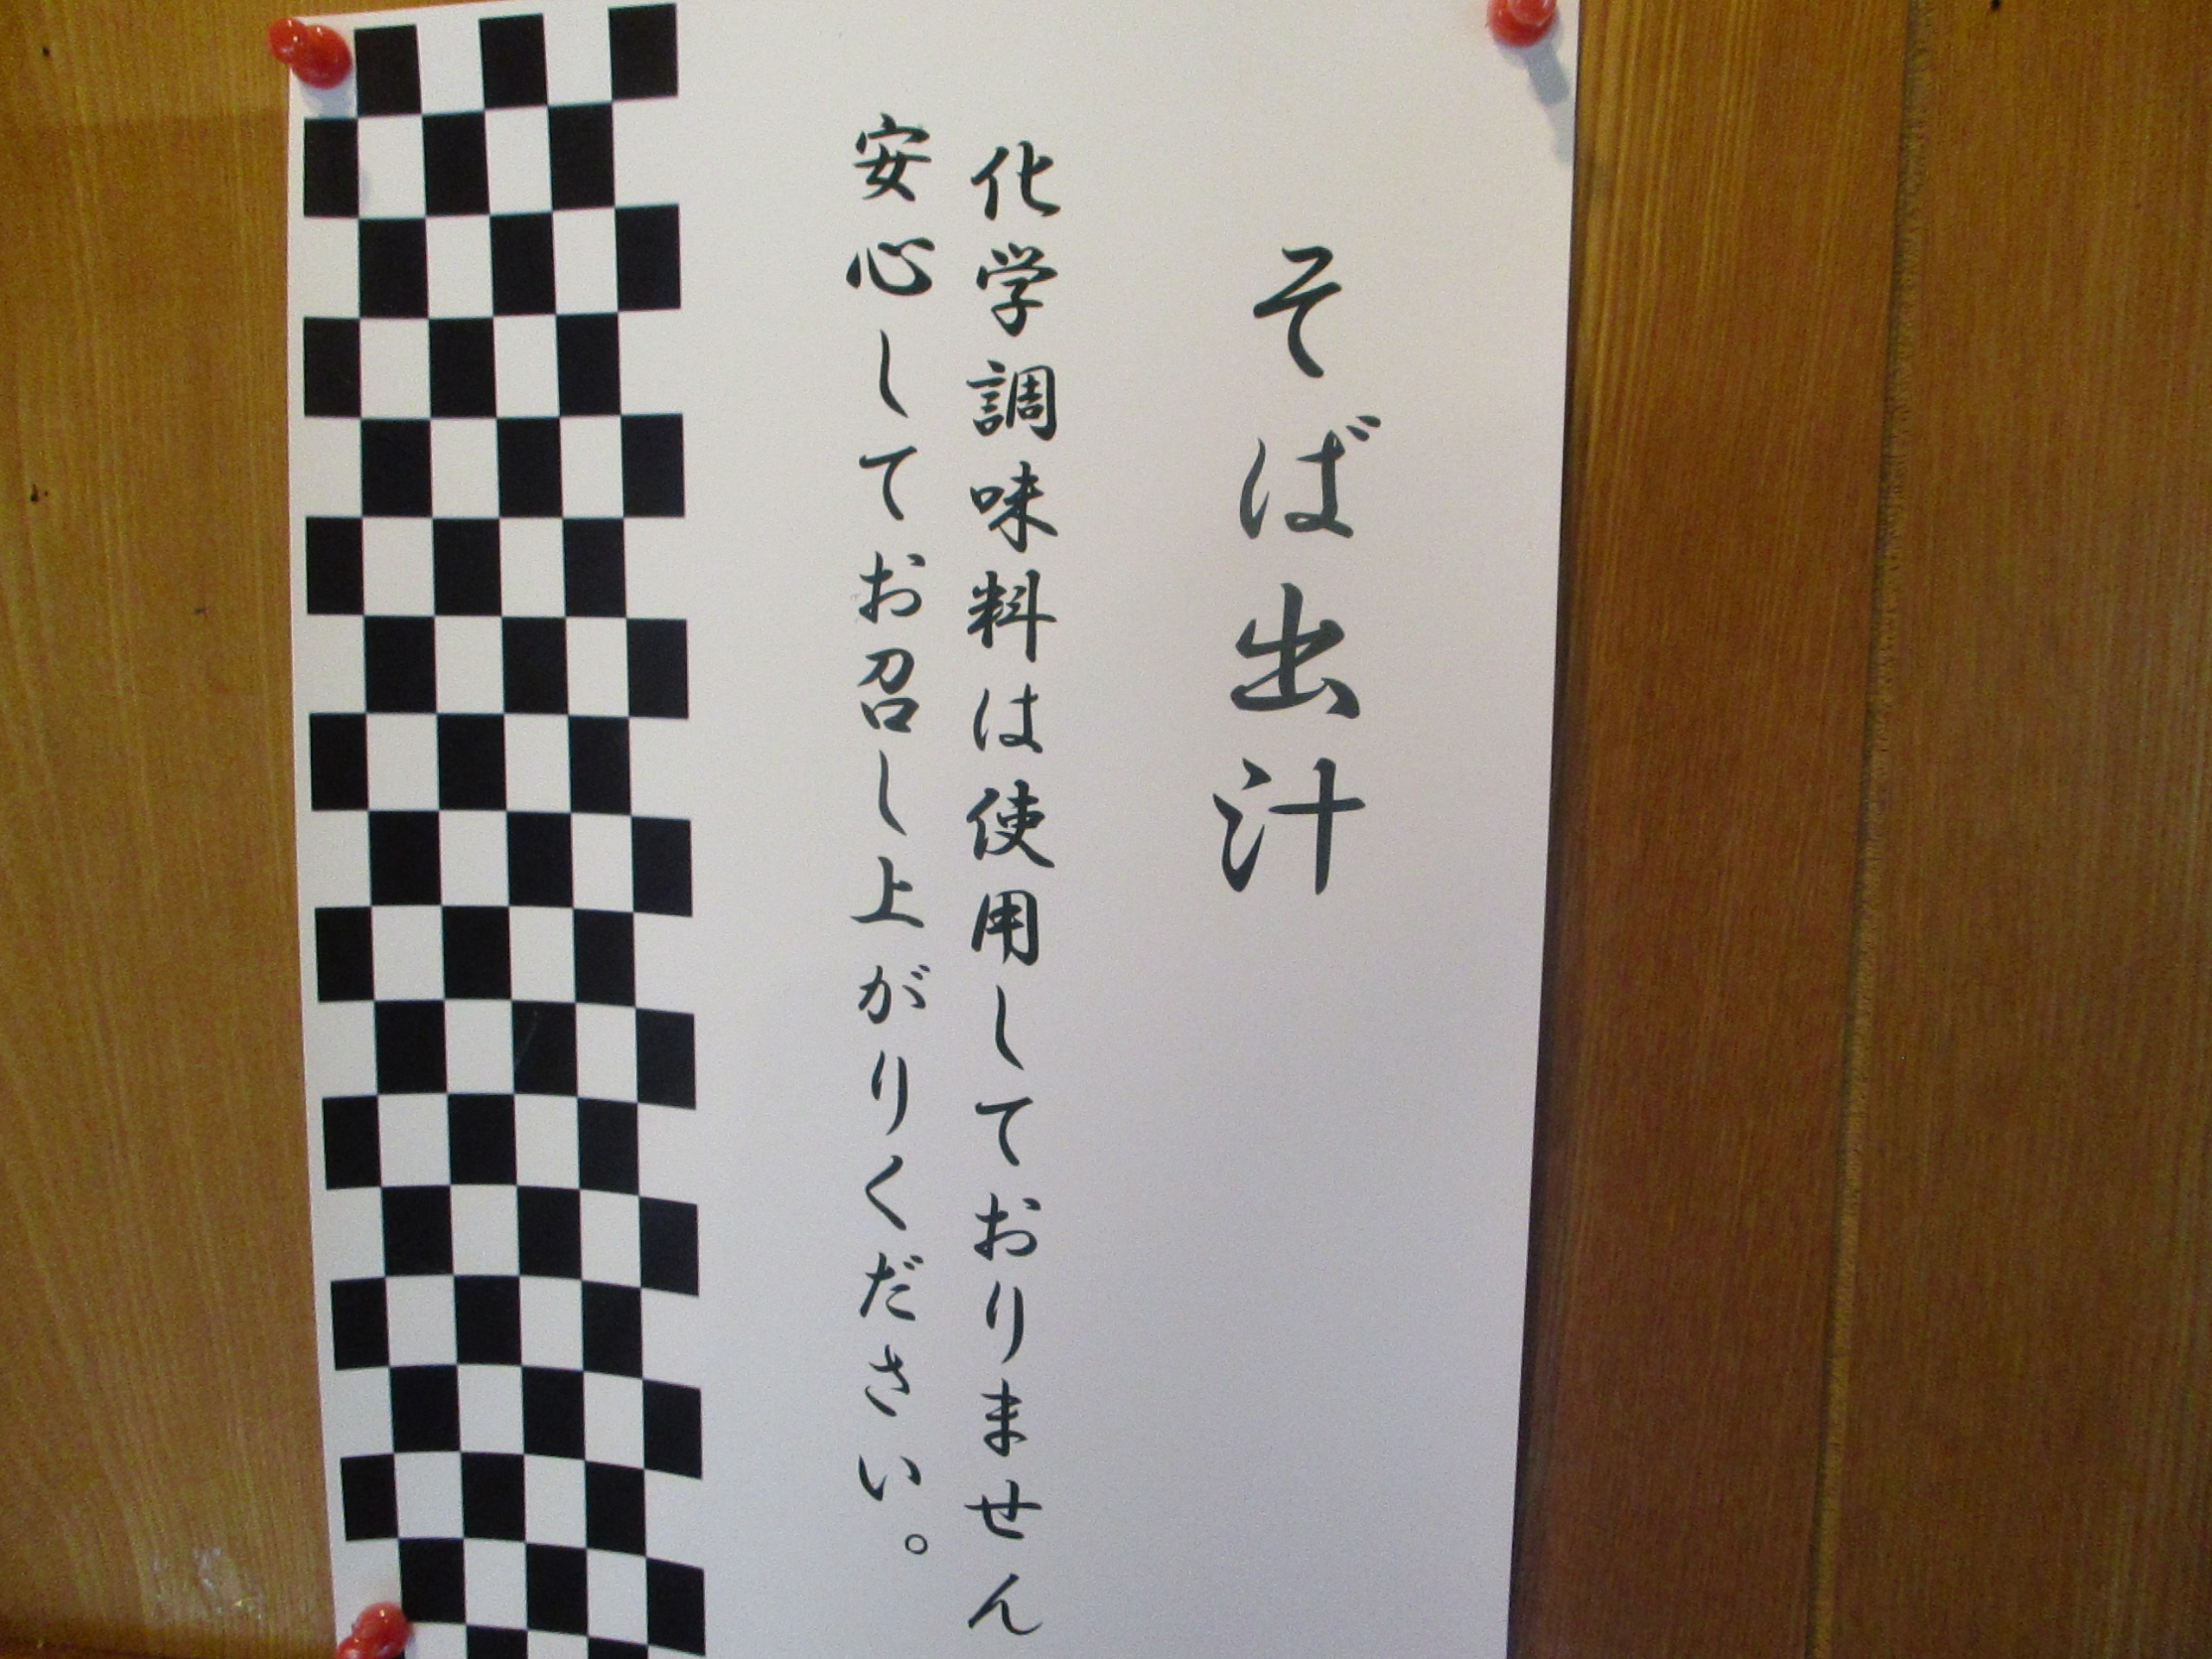 そば出汁
化学調味料は使用しておりません
安心してお召し上がりください。